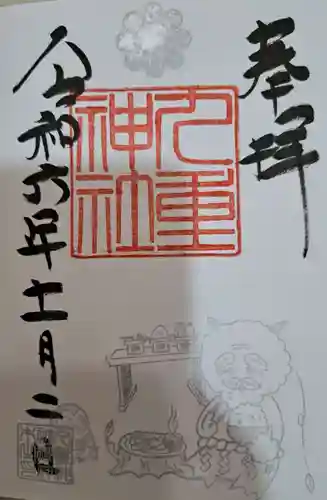 奉拝
九重
神社
令和六年十一月二